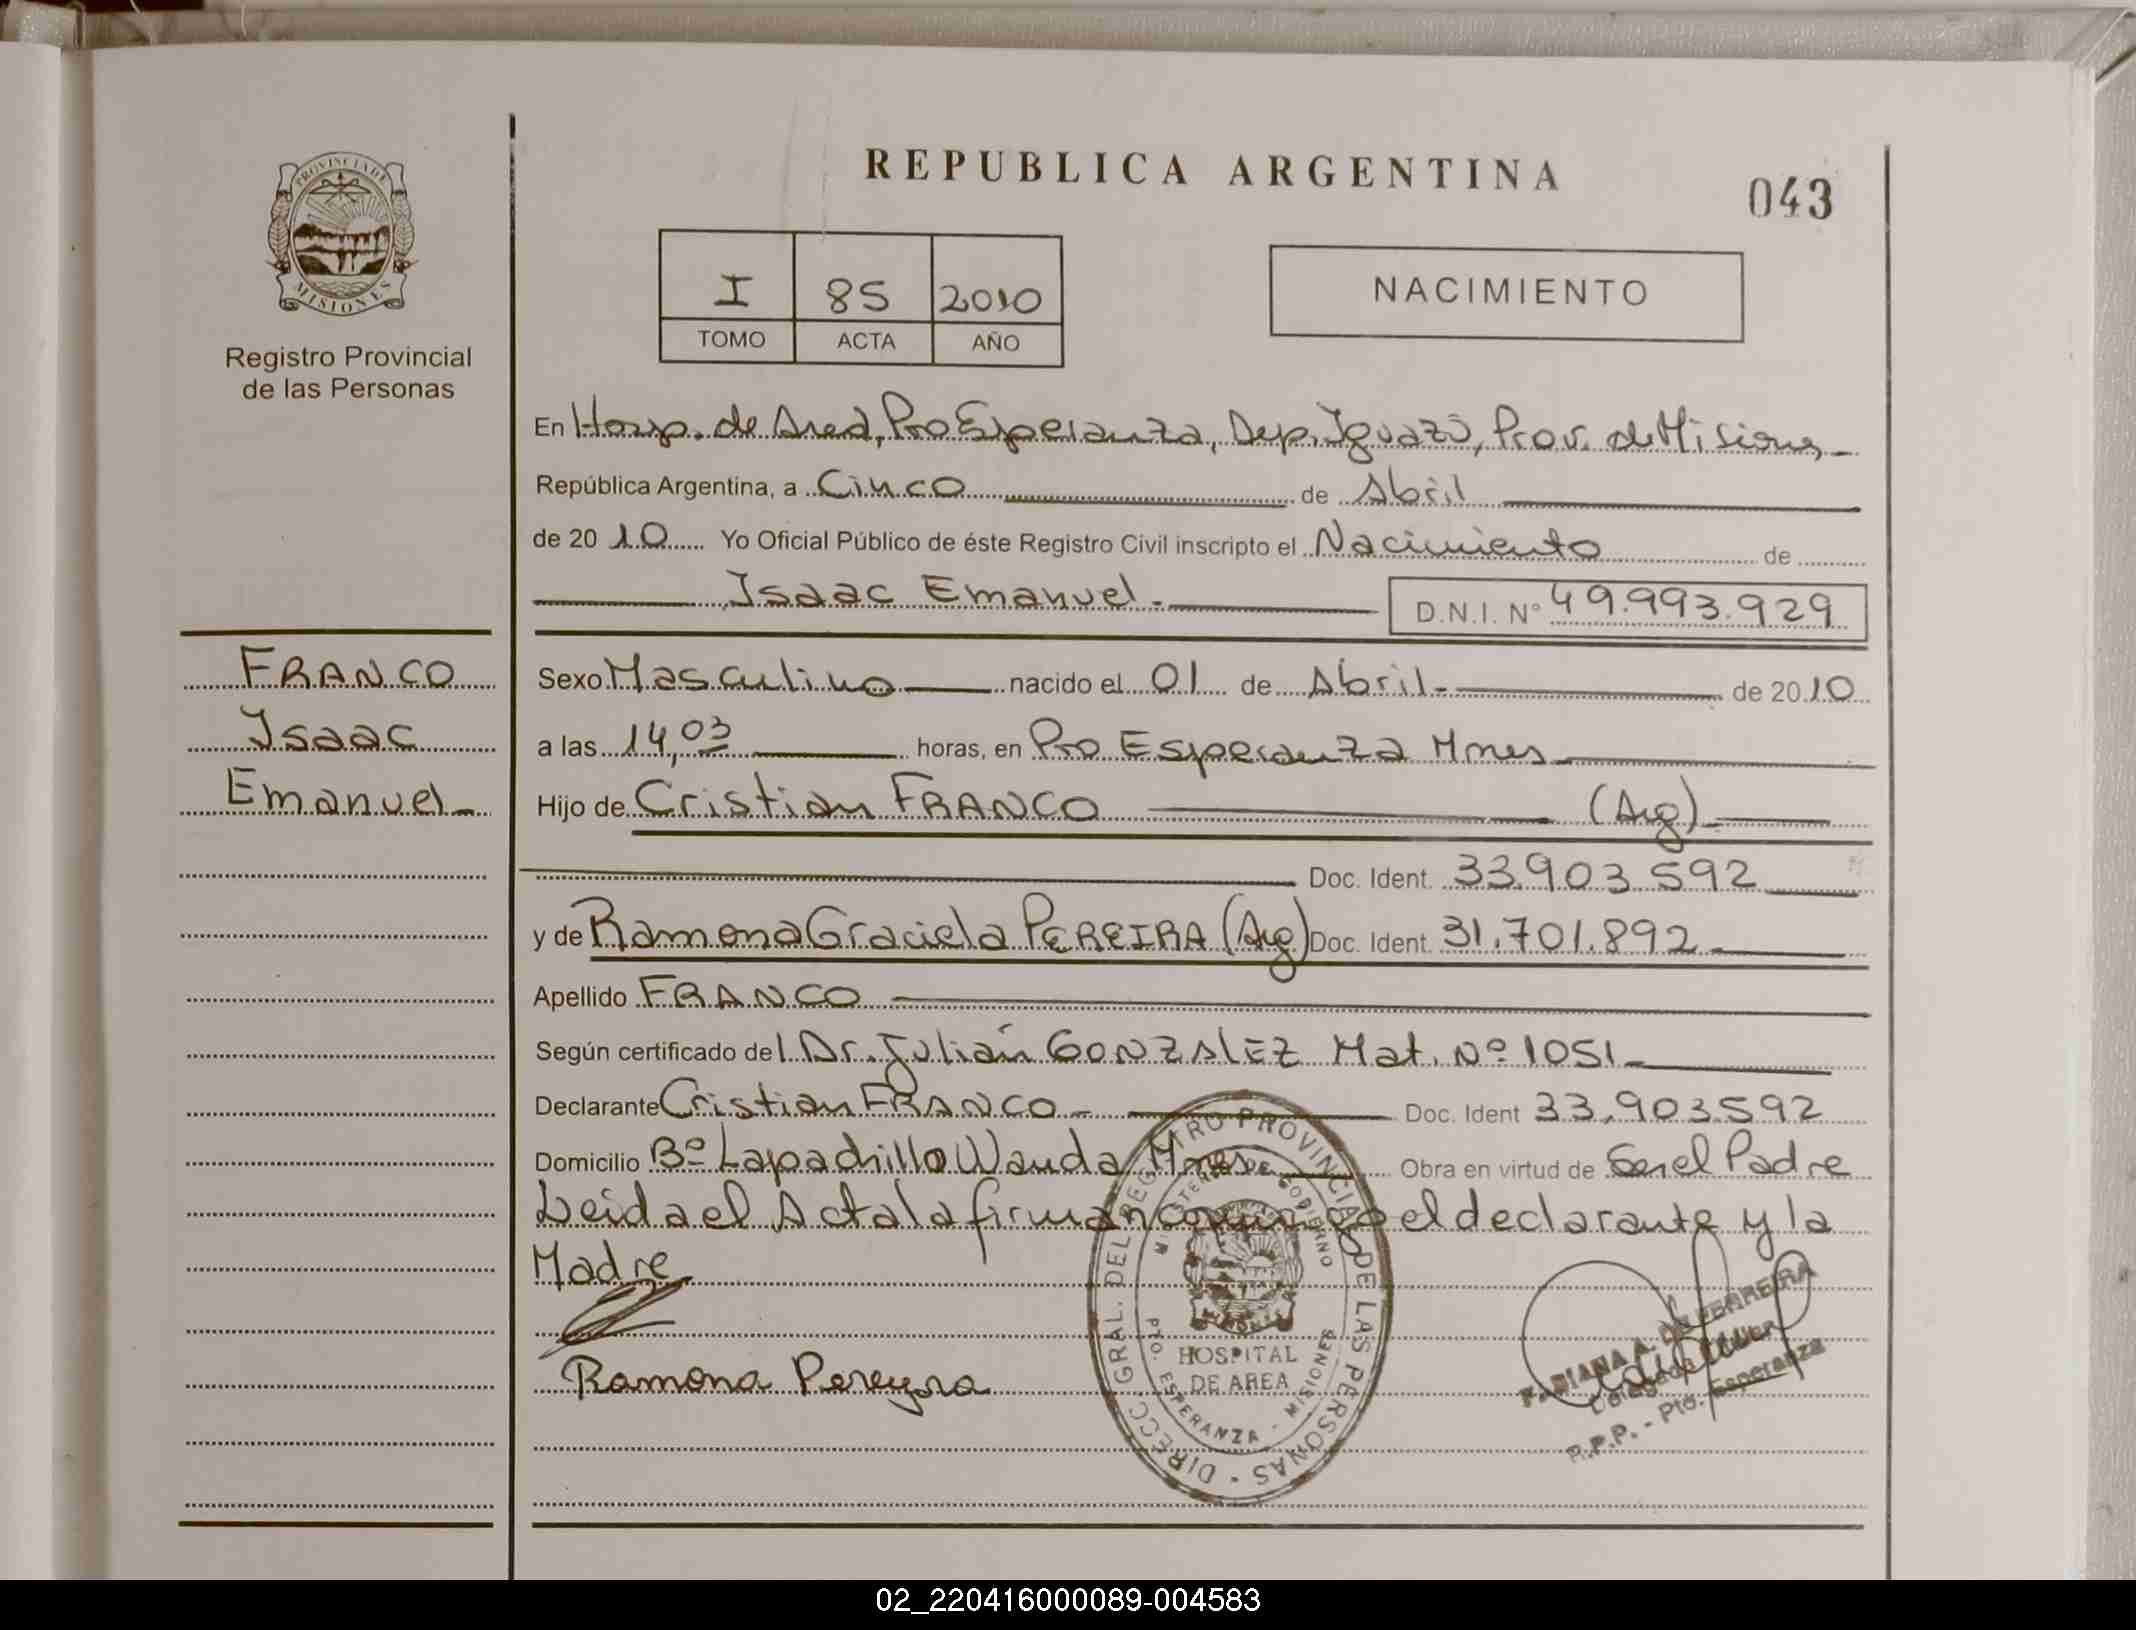 PROVINCIA DE
MISIONES
Registro Provincial
de las Personas
FRANCO
Isaac
Emanuel
REPUBLICA ARGENTINA
043
I 85 2010
TOMO ACTA AÑO
NACIMIENTO
En Hosp. de Area, Pto Esperanza, Dep. Iguazú, Prov. de Misiones
República Argentina, a Cinco de Abril
de 2010 Yo Oficial Público de éste Registro Civil inscripto el Nacimiento de
Isaac Emanuel. D.N.I. Nº 49.993.929
Sexo Masculino nacido el 01 de Abril de 2010
a las 14,03 horas, en Pto Esperanza Mnes
Hijo de Cristian FRANCO (Arg)
Doc. Ident. 33.903.592
y de Ramona Graciela PEREIRA (Arg) Doc. Ident. 31.701.892
Apellido FRANCO
Según certificado del Dr. Julián GONZALEZ Mat. Nº 1051
Declarante Cristian FRANCO Doc. Ident 33.903.592
Domicilio Bº Lapachillo Wanda Mnes Obra en virtud de Ser el Padre
Leida el Acta la firman conmigo el declarante y la
Madre
Ramona Pereyra
DIRECC. GRAL. DEL REGISTRO PROVINCIAL DE LAS PERSONAS
MINISTERIO DE GOBIERNO
HOSPITAL
DE AREA
PTO. ESPERANZA - MISIONES
DIANA A. DE FERREIRA
Delegada
R.P.P. - Pto. Esperanza
02_220416000089-004583